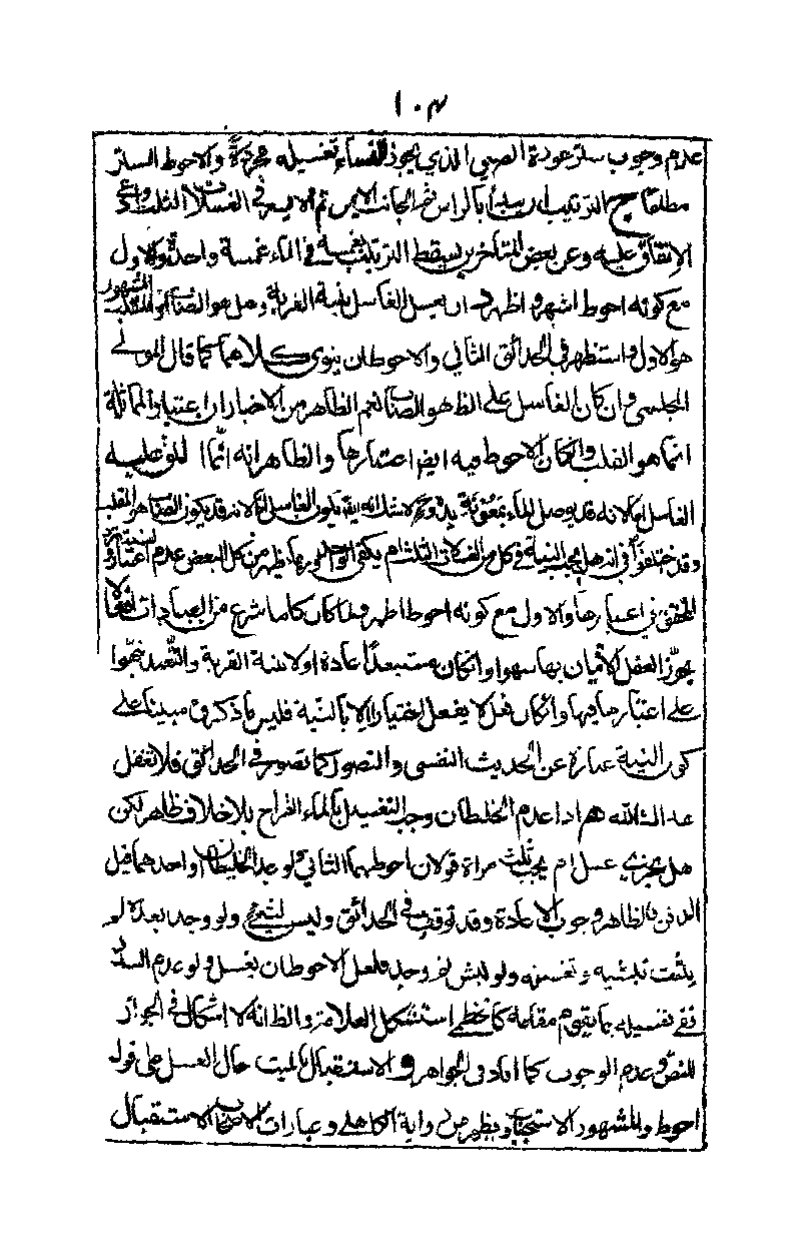 ١٠٣
عدم وجوب ستر عورة الصبي الذي يجوز للنساء تغسيله مجردة والاحوط الستر
مطلقا ج الترتيب ان يبدأ بالراس ثم الجانب الايمن ثم الايسر في الغسلات الثلث وادعي
الاتفاق عليه وعن بعض المتأخرين سقط الترتيب بغمسه في الماء غمسة واحدة والاول
مع كونه احوط اشهر واظهر د ان يغسل الغاسل بنية القربة وهل هو الصاب او المقلب المشهور
هو الاول واستظهر في الحدائق الثاني والاحوط ان ينوي كلاهما كما قال المولى
المجلسي وان كان الغاسل على الظ هو الصاب نعم الظاهر من الاخبار ان اعتبار المماثلة
انما هو المقلب وان كان الاحوط فيه ايض اعتبارها والظاهر انه انما اطلق عليه
الغاسل اما لانه قد يوصل الماء بمعونة يده وح لا شك انه يقلبون الغاسل او لانه قد يكون الصاب هو المقلب
وقد اختلفوا في انه هل يجب النية في كل من الغسلات الثلث ام يكفي الواحدة وربما يظهر من كل البعض عدم اعتبارها
المحقق في اعتبارها والاول مع كونه احوط اظهر ولما كان كلما شرع من العبادات افعالا
يجوز العقل الاتيان بها سهوا وان كان مستبعدا عادة او لا بنية القربة والتعبد نبهوا
على اعتبارها فيها وان كان فعل لا يفعل اختيارا الا بالنية فليس ما ذكروه مبينا على
كون النية عبارة عن الحديث النفسي والتصور كما تصور في الحدائق فلا تغفل
هداك الله هـ اذا عدم الخليطان وجب التغسيل بالماء القراح بلا خلاف ظاهر لكن
هل يجزي غسل ام يجب ثلث مراة قولان احوطهما الثاني ولو وجد الخليطان او احدهما قبل
الدفن فالظاهر وجوب الاعادة وقد توقف في الحدائق وليس بشيء ولو وجد بعده لو
يثبت نبشه وتغسيله ولو نبش لغـ وجد فلعل الاحوط ان يغسل ولو عدم السدر
ففي تغسيله بما يقوم مقامه كالخطمي استشكل العلامة والظ انه لا اشكال في الجواز
للنص وعدم الوجوب كما افاد في الجواهر و الاستقبال بالميت حال الغسل على قول
احوط والمشهور الاستحباب ويظهر من رواية الكاهلي وعبارات الاصحاب الاستقبال